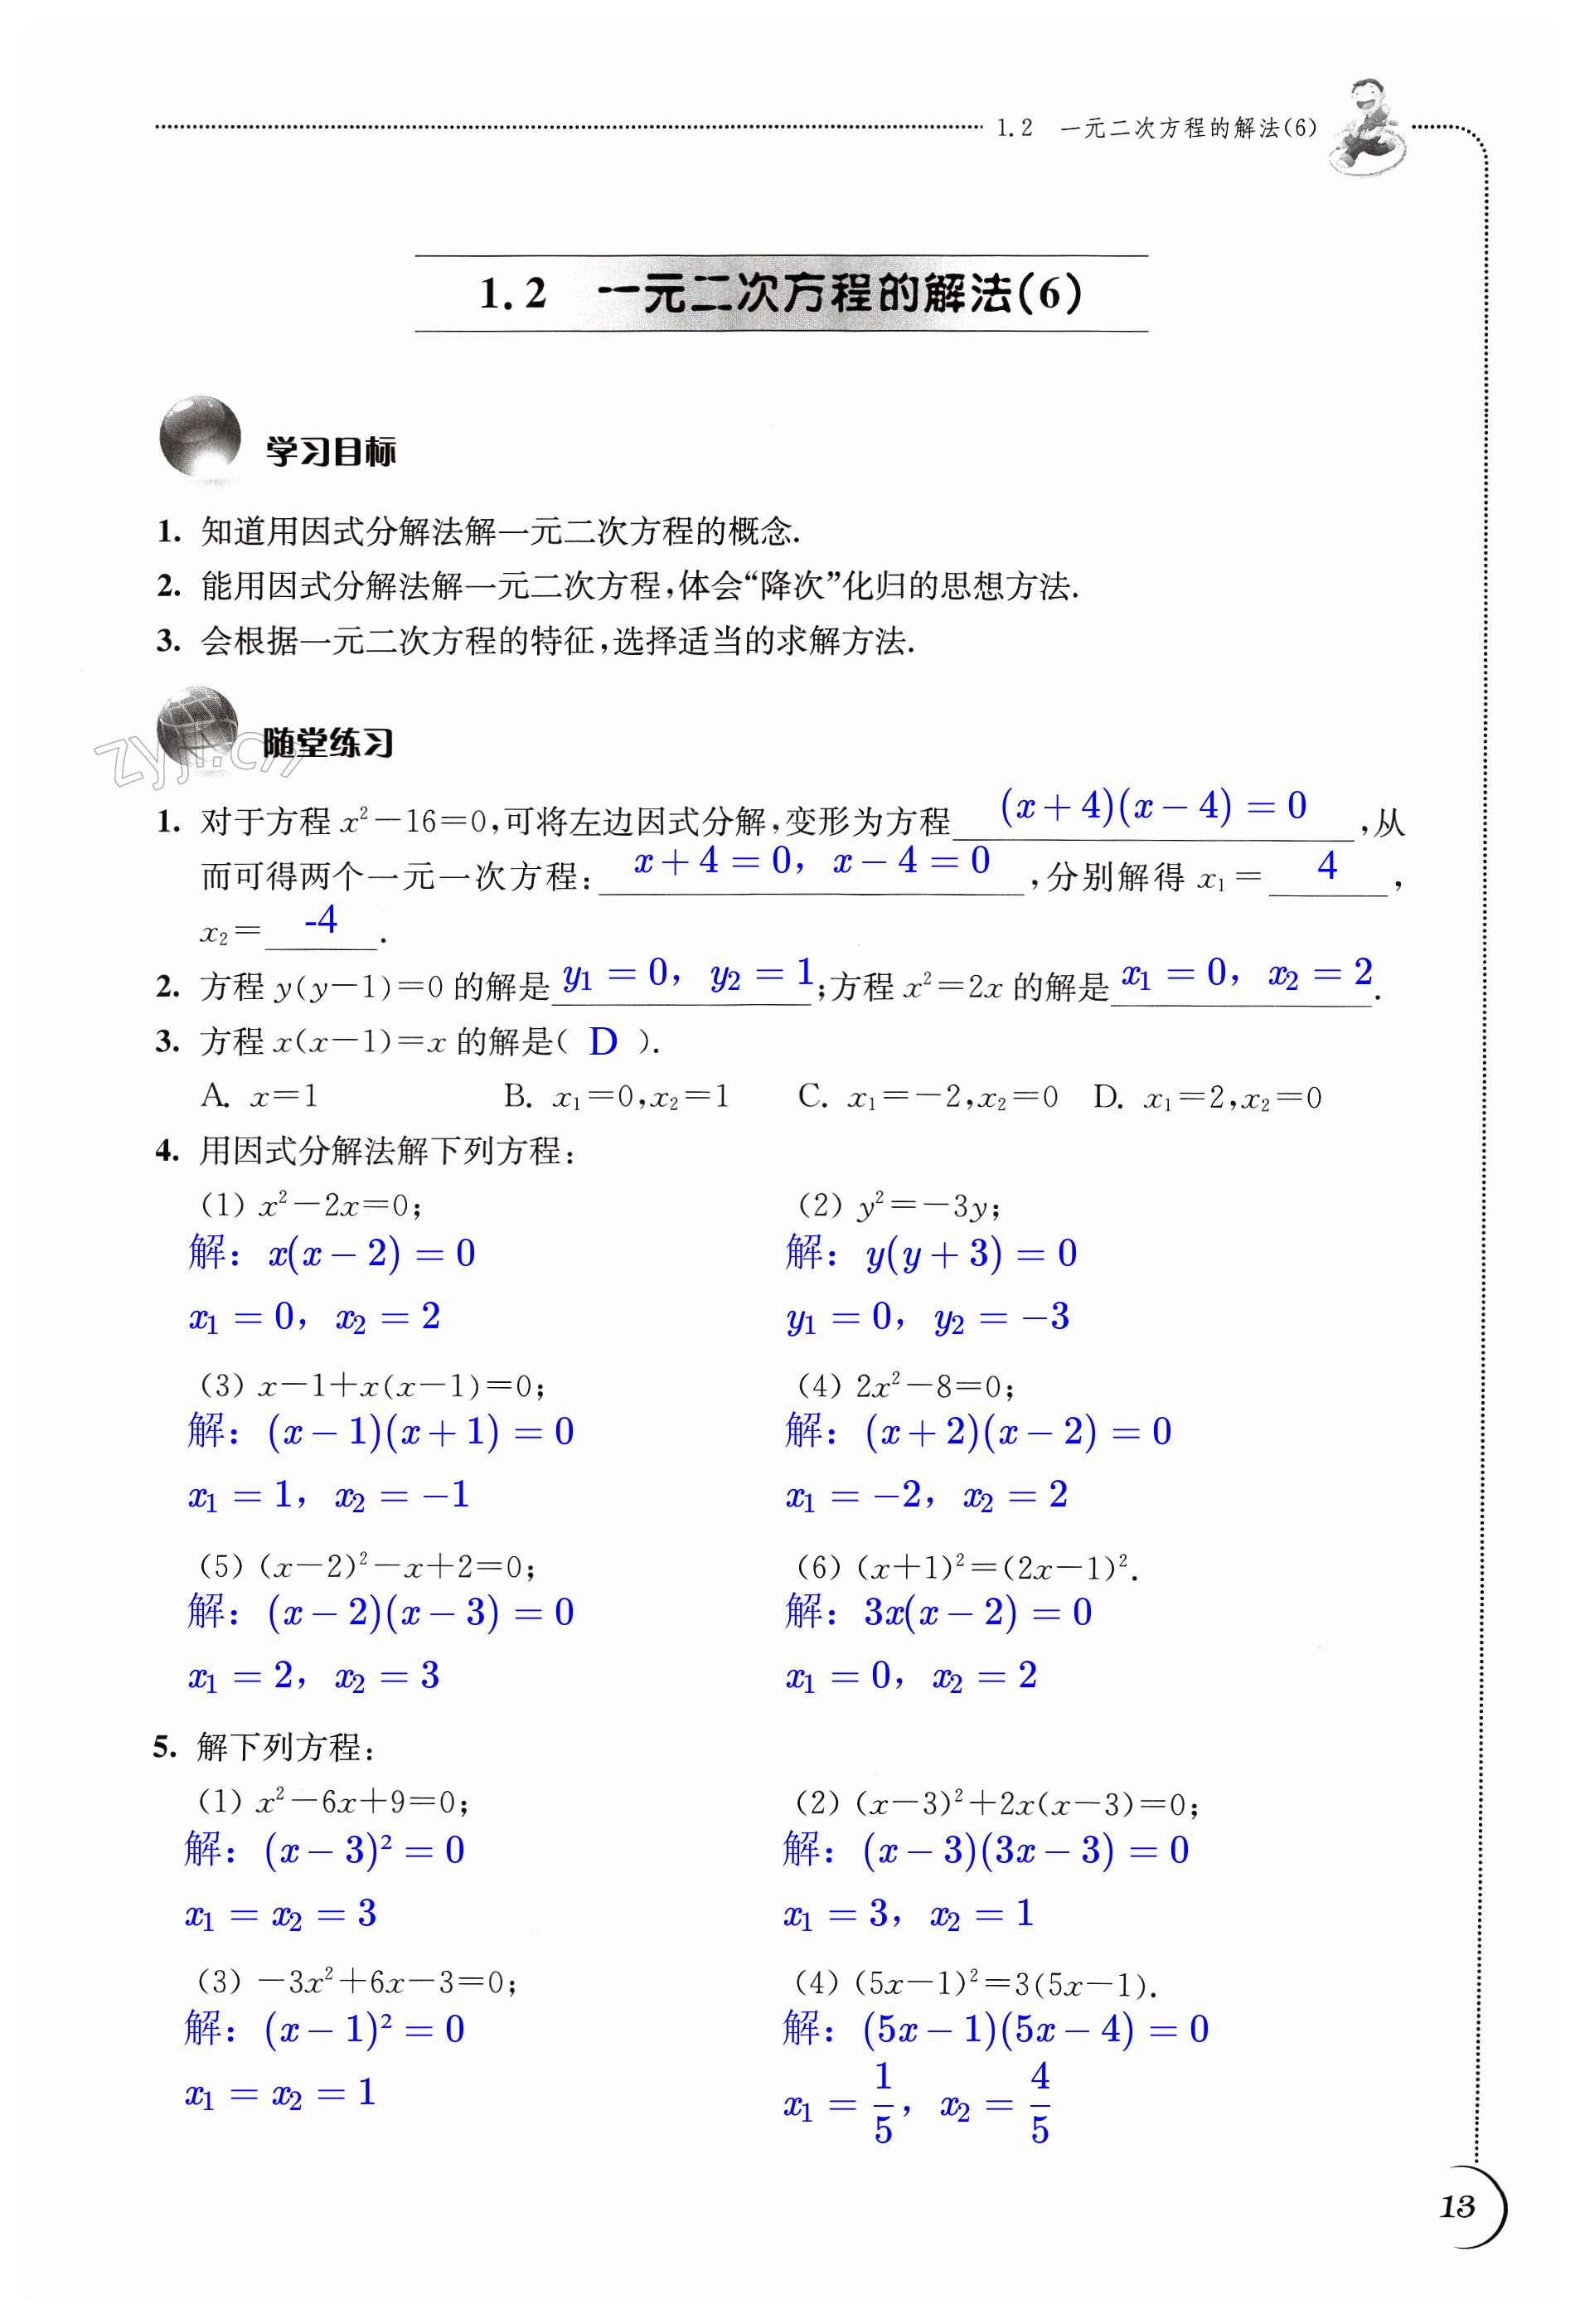 1.2 一元二次方程的解法(6)
1.2 一元二次方程的解法(6)
学习目标
1. 知道用因式分解法解一元二次方程的概念.
2. 能用因式分解法解一元二次方程,体会“降次”化归的思想方法.
3. 会根据一元二次方程的特征,选择适当的求解方法.
随堂练习
zyjl.cn
1. 对于方程 x²－16＝0,可将左边因式分解,变形为方程 (x＋4)(x－4)＝0 ,从
而可得两个一元一次方程: x＋4＝0，x－4＝0 ,分别解得 x₁＝ 4 ,
x₂＝ -4 .
2. 方程 y(y－1)＝0 的解是 y₁＝0，y₂＝1 ;方程 x²＝2x 的解是 x₁＝0，x₂＝2 .
3. 方程 x(x－1)＝x 的解是( D ).
A. x＝1 B. x₁＝0,x₂＝1 C. x₁＝－2,x₂＝0 D. x₁＝2,x₂＝0
4. 用因式分解法解下列方程:
(1) x²－2x＝0; (2) y²＝－3y;
解：x(x－2)＝0 解：y(y＋3)＝0
x₁＝0，x₂＝2 y₁＝0，y₂＝－3
(3) x－1＋x(x－1)＝0; (4) 2x²－8＝0;
解：(x－1)(x＋1)＝0 解：(x＋2)(x－2)＝0
x₁＝1，x₂＝－1 x₁＝－2，x₂＝2
(5) (x－2)²－x＋2＝0; (6) (x＋1)²＝(2x－1)².
解：(x－2)(x－3)＝0 解：3x(x－2)＝0
x₁＝2，x₂＝3 x₁＝0，x₂＝2
5. 解下列方程:
(1) x²－6x＋9＝0; (2) (x－3)²＋2x(x－3)＝0;
解：(x－3)²＝0 解：(x－3)(3x－3)＝0
x₁＝x₂＝3 x₁＝3，x₂＝1
(3) －3x²＋6x－3＝0; (4) (5x－1)²＝3(5x－1).
解：(x－1)²＝0 解：(5x－1)(5x－4)＝0
x₁＝x₂＝1 x₁＝1/5，x₂＝4/5
13